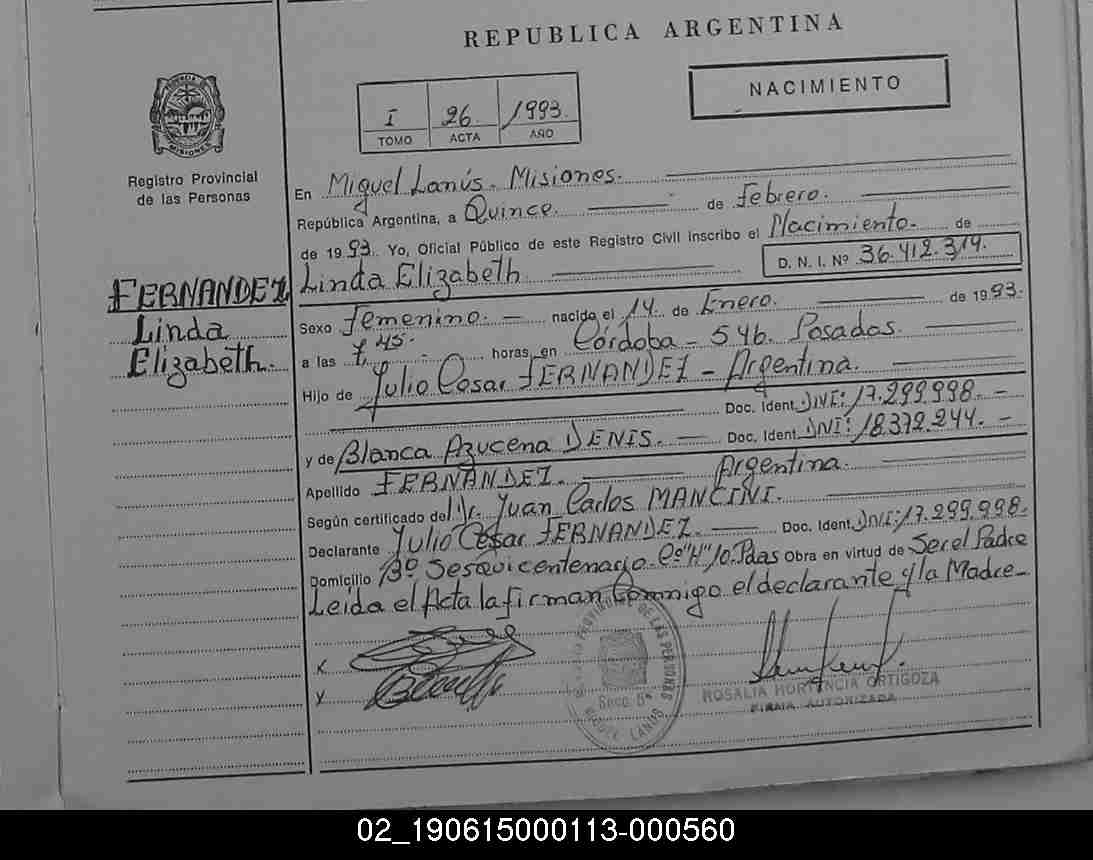 REPUBLICA ARGENTINA
NACIMIENTO
I 26. 1993.
TOMO ACTA AÑO
PROVINCIA DE MISIONES
Registro Provincial
de las Personas
FERNANDEZ
Linda
Elizabeth.
En Miguel Lanús. Misiones.
República Argentina, a Quince. de Febrero.
de 1993. Yo, Oficial Público de este Registro Civil inscribo el Nacimiento. de
Linda Elizabeth D. N. I. Nº 36.412.314.
Sexo Femenino. nacido el 14. de Enero. de 1993.
a las 45. horas, en Córdoba - 546. Posadas.
Hijo de Julio Cesar FERNANDEZ - Argentina.
Doc. Ident. DNI: 17.299.998.-
y de Blanca Azucena DENIS. Doc. Ident. DNI: 18.372.244.-
Apellido FERNANDEZ. Argentina.
Según certificado del Dr. Juan Carlos MANCINI.
Declarante Julio Cesar FERNANDEZ. Doc. Ident. DNI: 17.299.998.
Domicilio Bº Sesquicentenario. Cº "H" 10. Pdas Obra en virtud de Ser el Padre
Leida el Acta la firman Commigo el declarante y la Madre-
PROVINCIAL DE LAS PERSONAS
Secc. 5ª
MIGUEL LANUS
ROSALIA HORTENCIA ORTIGOZA
FIRMA AUTORIZADA
02_190615000113-000560